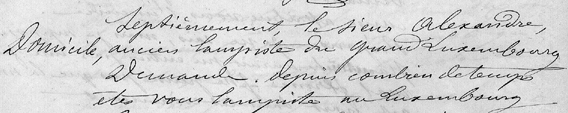 Septièmement, le sieur Alexandre,
Domicile, ancien lampiste du grand Luxembourg
Demande. depuis combien de temps
êtes vous lampiste au Luxembourg